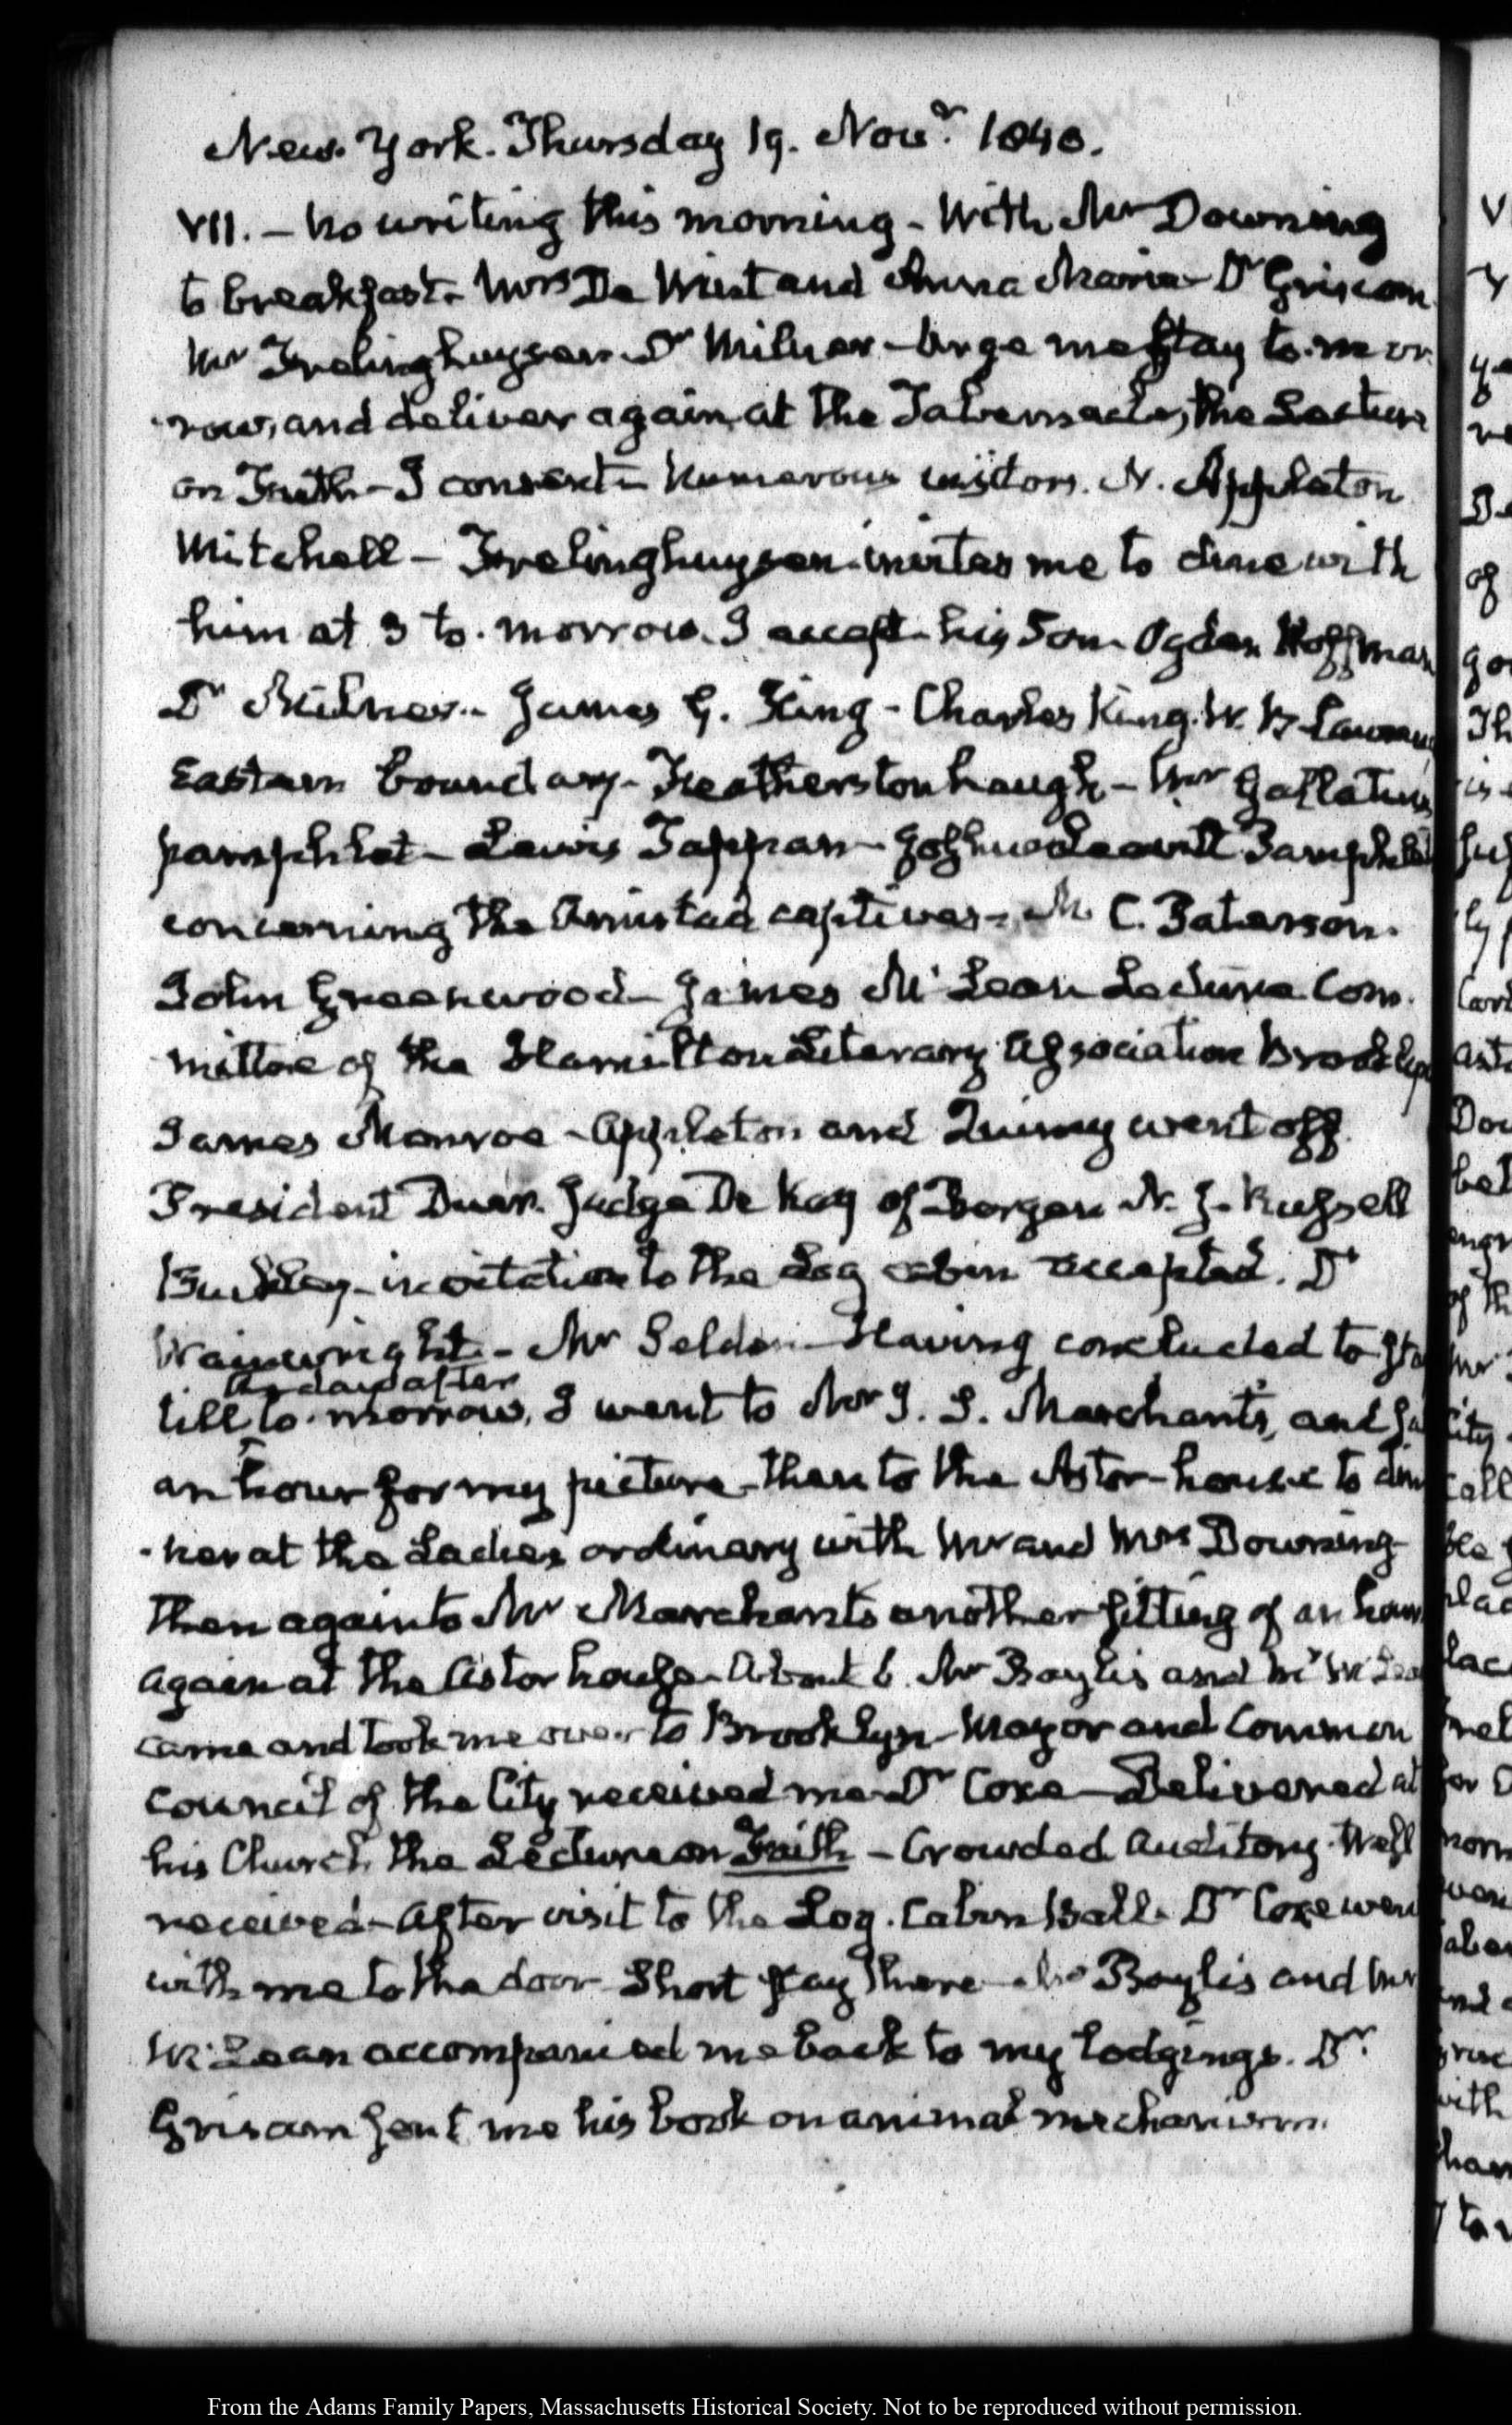 New-York. Thursday 19. Novr. 1840.
VII. — No writing this morning – With Mr Downing
to breakfast – Mrs De Wint and Anna Maria – Dr Griscom
Mr Frelinghuysen – Dr Milnor – Urge me stay to-mor-
-row, and deliver again at the Tabernacle, the Lecture
on Faith – I consent – Numerous visitors. N. Appleton
Mitchell – Frelinghuysen invites me to dine with
him at 3 to-morrow. I accept – his Son – Ogden Hoffman
Dr Milnor – James G. King – Charles King. W. B. Lawrence
Eastern boundary – Featherstonhaugh – Mr Gallatin's
pamphlet – Lewis Tappan – Joshua Leavitt Pamphlet
concerning the Amistad captives – M C. Paterson.
John Greenwood – James McLean Lecture Com-
-mittee of the Hamilton Literary Association Brooklyn
James Monroe – Appleton and Quincy went off
President Duer. Judge De Kay of Bergen N. J. Russell
invitation to the Log cabin accepted. Dr
Wainwright – Mr Selden – Having concluded to stay
and day after
till to-morrow, I went to Mr Marchant's, and sat
an hour for my picture – then to the Astor-house to din-
-ner at the Ladies ordinary with Mr and Mrs Downing –
Then again to Mr Marchants another sitting of an hour
again at the Astor house – About 6. Mr Baylis and Mr McLean
came and took me over to Brooklyn – Mayor and Common
Council of the City received me – Dr Coxe – Delivered at
his Church the Lecture on Faith – Crowded auditory. Well
received – After visit to the Log. Cabin Ball. Dr Coxe went
with me to the door – Short stay there – Mr Baylis and Mr
McLean accompanied me back to my lodgings. Dr.
Griscom sent me his book on animal mechanism.
From the Adams Family Papers, Massachusetts Historical Society. Not to be reproduced without permission.